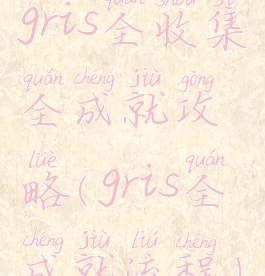 quán shōu jí
gris全收集
quán chéng jiù gōng
全成就攻
lüè quán
略(gris全
chéng jiù liú chéng
成就流程)